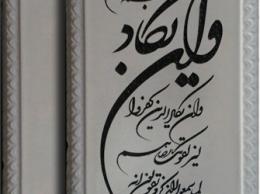 وان یکاد
وان یکاد الذین کفروا
لیزلقونک بابصارهم
لما سمعوا الذکر و یقولون انه